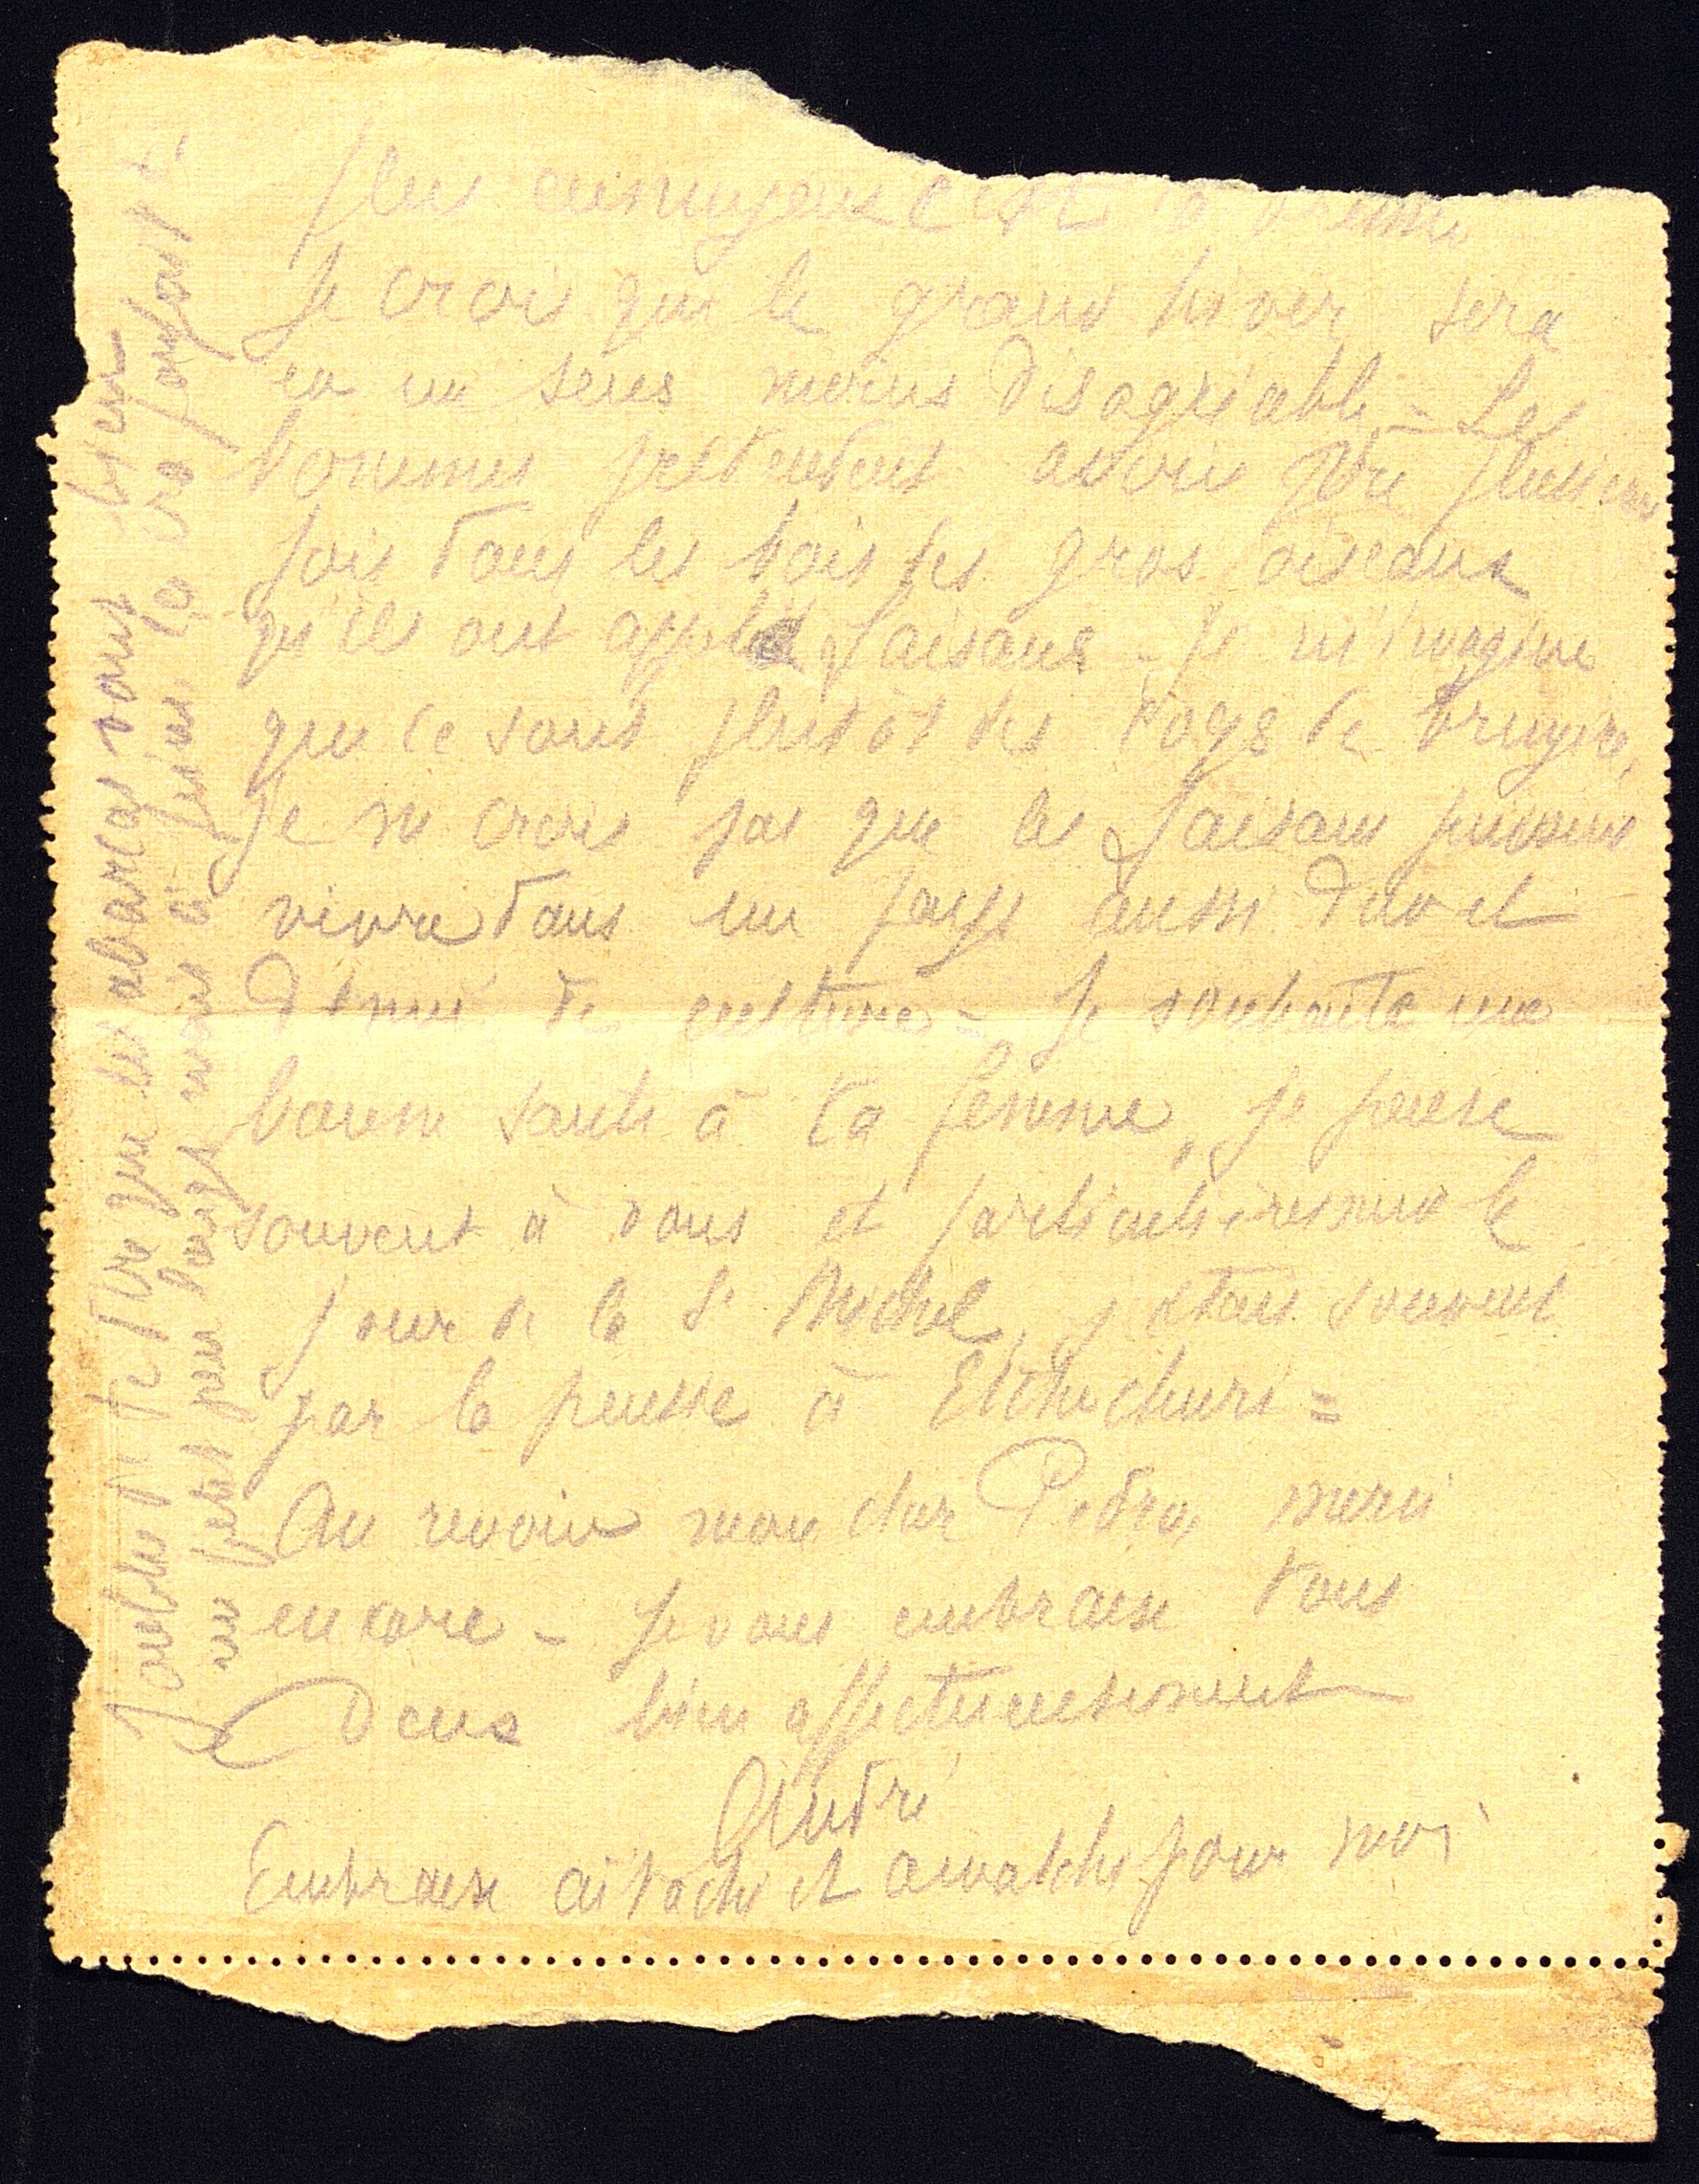 plus ennuyeux c'est la brume
Je crois que le grand hiver sera
en un sens moins désagréable - Les
hommes prétendent avoir vu plusieurs
fois dans les bois des gros oiseaux
qu'ils ont appelé faisans - Je m'imagine
que ce sont plutôt des coqs de bruyère,
Je ne crois pas que les faisans puissent
vivre dans un pays aussi dur et
dénué de culture = Je souhaite une
bonne santé à ta femme, je pense
souvent à vous et particulièrement le
jour de la St Michel, j'étais souvent
par la pensée à Etchechuri =
Au revoir mon cher Pedro, merci
encore - Je vous embrasse tous
deux bien affectueusement
André
Embrasse aïtachi et amatchi pour moi
J'oubliais de te dire que les abarcas vont bien
un petit peu longs mais à peine, ça va parfait